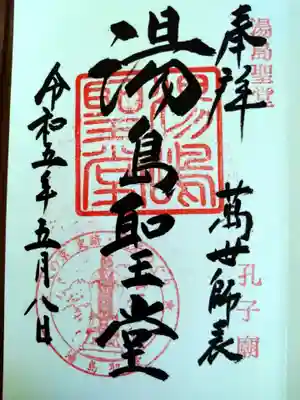 湯島聖堂
奉拝
萬世師表
孔子廟
湯島聖堂
湯嶋聖堂
令和五年五月八日